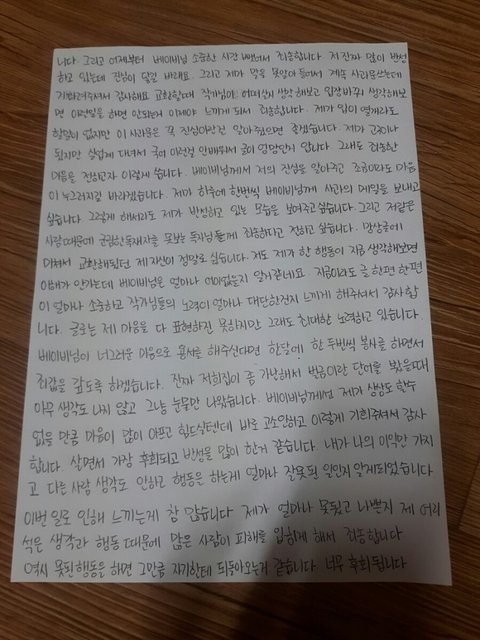 니다. 그리고 어제부터 베이비님 소중한 시간 뺏어서 죄송합니다. 저 진짜 많이 반성
하고 있는데 진심이 닿길 바래요. 그리고 제가 말을 못알아 들어서 계속 사과문쓰는데
기다려주셔서 감사해요 교환할때 작가님이 어떠실지 생각해보고 입장 바꿔 생각해보
면 이런일을 하면 안되는데 이제야 느끼게 되서 죄송합니다. 제가 입이 열개라도
할말이 없지만 이 사과문은 꼭 진심이란건 알아줬으면 좋겠습니다. 제가 고
되지만 실업계 다녀서 글이 이런걸 안배워서 글이 엉망인지 압니다. 그래도 죄송한
마음은 전하고자 이렇게 씁니다. 베이비님께서 저의 진심을 알아주고 조금이라도 마음
이 누그러지길 바라겠습니다. 제가 하루에 한번씩 베이비님께 사과의 메일을 보내고
싶습니다 그렇게 해서라도 제가 반성하고 있는 모습을 보여주고싶습니다. 그리고 저같은
사람 때문에 못보는 독자님들께 죄송하다고 전하고 싶습니다.
미쳐서 교환해줬던 제 자신이 정말로 싫습니다. 저도 제가 한 행동이 지금 생각해보면
이해가 안가는데 베이비님은 얼마나 어이없을지 알거같네요. 지금이라도 글 한편 한편
이 얼마나 소중하고 작가님들의 노력이 얼마나 대단한건지 느끼게 해주셔서 감사합
니다. 글로는 제 마음을 다 표현하진 못하지만 그래도 최대한 노력하고 있습니다.
베이비님이 너그러운 마음으로 용서를 해주신다면 한달에 한 두번씩 봉사를 하면서
죄값을 갚도록 하겠습니다. 진짜 저희집이 좀 가난해서 벌금이란 단어를 봤을때
아무 생각도 나지 않고 그냥 눈물만 나왔습니다. 베이비님께선 제가 상상도 할수
없을 만큼 마음이 많이 아프고 힘드실텐데 바로 고소안하고 이렇게 기회주셔서 감사
합니다. 살면서 가장 후회되고 반성을 많이 한거 같습니다. 내가 나의 이익만 가지
고 다른 사람 생각도 안하고 행동을 하는게 얼마나 잘못된 일인지 알게되었습니다
이번 일로 인해 느끼는게 참 많습니다 제가 얼마나 못됐고 나쁜지 제 어리
석은 생각과 행동 때문에 많은 사람이 피해를 입히게 해서 죄송합니다
역시 못된 행동을 하면 그만큼 자기한테 되돌아오는거 같습니다. 너무 후회됩니다